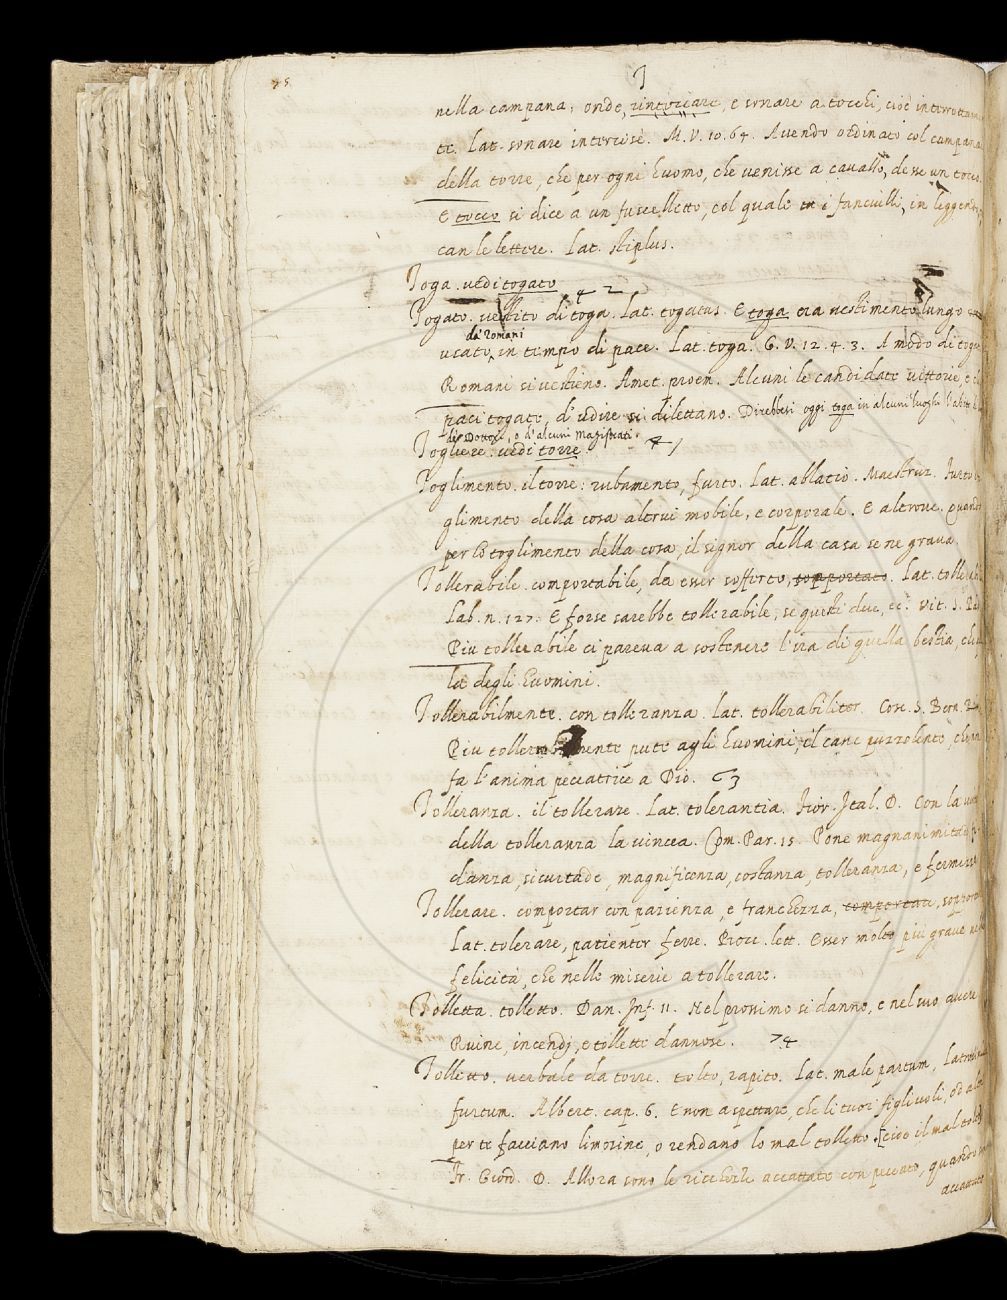 T
nella campana: onde, rintoccare, e sonare a tocchi, cioè
te. Lat. sonare intercise. M.V. 10.64. Avendo ordinato col campana
della torre, che per ogni huomo, che venisse a cavallo, desse un tocco.
E tocco si dice a un fuscelletto, col quale i fanciulli, in leggendo,
can le lettere. Lat. stiplus.
Toga. vedi togato
Togato. vestito di toga. Lat. togatus. E toga era vestimento lungo
de' Romani
ucato, in tempo di pace. Lat. toga. G.V. 12.4.3. A modo di
Romani si vestieno. Amet. proem. Alcuni le candidate vittorie, e
paci togate, d'udire si dilettano. Direbbesi oggi toga in alcuni luoghi l'abito
de' Dottori, o d'alcuni Magistrati.
Togliere. vedi torre.
Toglimento. il torre: rubamento, furto. Lat. ablatio. Maestruz. Furto
glimento della cosa altrui mobile, e corporale. E altrove.
per lo toglimento della cosa, il signor della casa se ne grava
Tollerabile. comportabile, da esser sofferto, sopportato. Lat.
Lab. n. 127. E forse sarebbe tollerabile, se questi
Piu tollerabile ci pareva a sostenere l'ira di quella bestia,
la degli huomini.
Tollerabilmente. con tolleranza. Lat. tollerabiliter. Cosc. S. Bern.
Piu pute agli huomini, il cane puzzolente,
fa l'anima peccatrice a Dio.
Tolleranza. il tollerare. Lat. tolerantia. Fior. Ital. D. Con la
della tolleranza la vincea. Com. Par. 15. Pone
danza, sicurtade, magnificenza, costanza, tolleranza, e
Tollerare. comportar con pazienza, e franchezza,
Lat. tolerare, patienter ferre. Bocc. lett. Esser molto piu grave
felicità, che nelle miserie a tollerare.
Tolletta. tolletto. Dan. Inf. 11. Nel prossimo si danno, e nel suo avere
Ruine, incendj, e tollette dannose.
Tolletto. verbale da torre. tolto, rapito. Lat. male partum,
furtum. Albert. cap. 6. E non aspettare, che li tuoi figliuoli, od
per te facciano limosine, o rendano lo mal tolletto. [cioè il mal
Fr. Giord. D. Allora sono le ricchezze accattate con peccato, quando